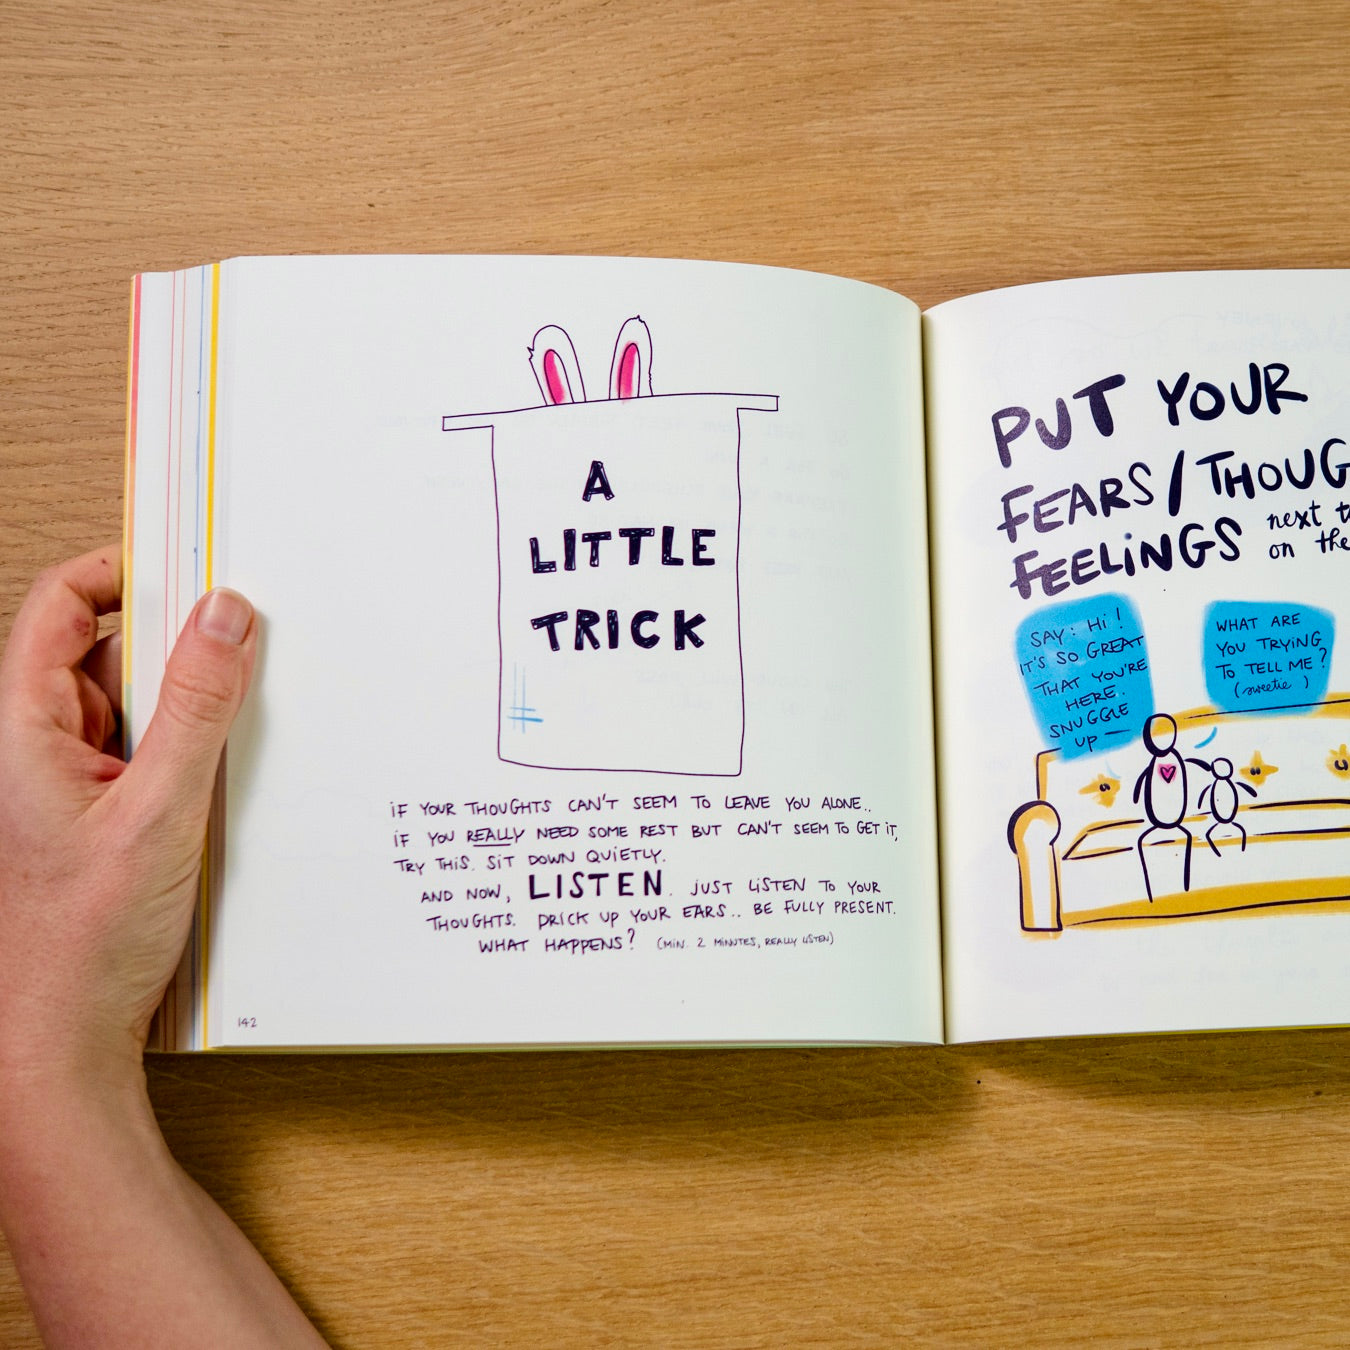 A
LITTLE
TRICK
iF YOUR THOUGHTS CAN'T SEEM TO LEAVE YOU ALONE..
iF YOU REALLY NEED SOME REST BUT CAN'T SEEM TO GET iT,
TRY THiS. SiT DOWN QUiETLY.
AND NOW, LISTEN. JUST LiSTEN TO YOUR
THOUGHTS. PRICK UP YOUR EARS.. BE FULLY PRESENT.
WHAT HAPPENS? (MiN. 2 MiNUTES, REALLY LiSTEN)
142
PUT YOUR
FEARS/THOUG
FEELiNGS next t
on the
SAY: Hi!
IT'S SO GREAT
THAT YOU'RE
HERE.
SNUGGLE
UP—
WHAT ARE
YOU TRYiNG
TO TELL ME?
(sweetie)